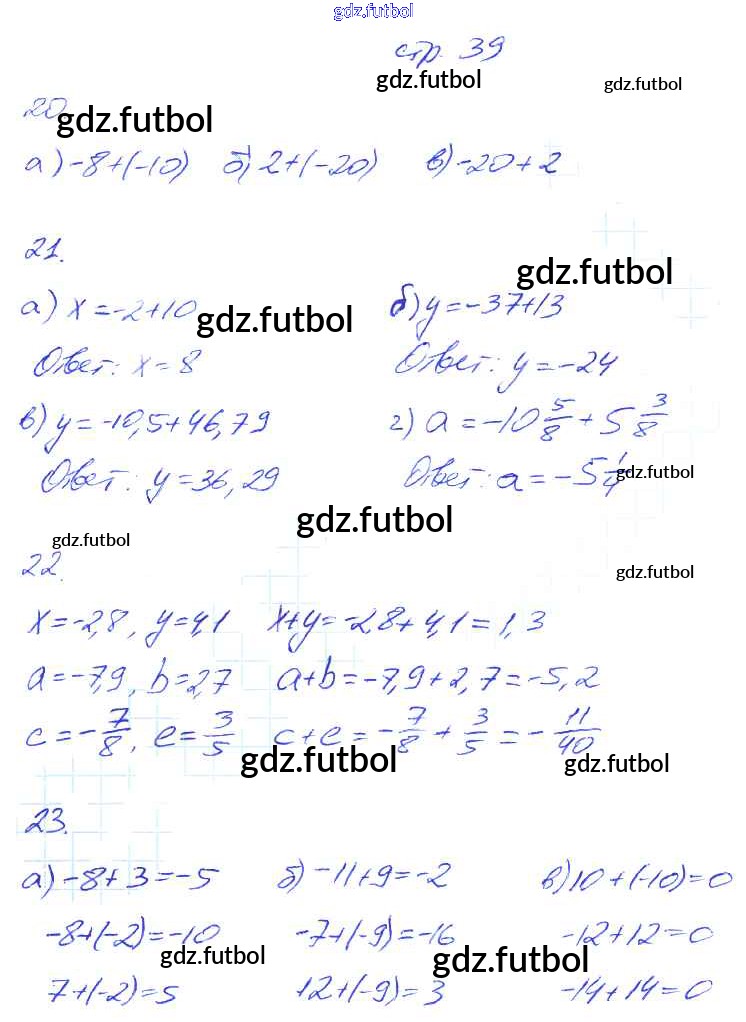 gdz.futbol
стр. 39
gdz.futbol gdz.futbol
20. gdz.futbol
а) -8+(-10) б) 2+(-20) в) -20+2
21.
gdz.futbol
а) x = -2+10 gdz.futbol б) y = -37+13
Ответ: x = 8 Ответ: y = -24
в) y = -10,5+46,79 г) a = -10 5/8 + 5 3/8
Ответ: y = 36,29 Ответ: a = -5 1/4 gdz.futbol
gdz.futbol
gdz.futbol
22. gdz.futbol
x = -2,8, y = 4,1 x+y = -2,8+4,1 = 1,3
a = -7,9, b = 2,7 a+b = -7,9+2,7 = -5,2
c = -7/8, e = 3/5 c+e = -7/8 + 3/5 = -11/40
gdz.futbol gdz.futbol
23.
а) -8+3 = -5 б) -11+9 = -2 в) 10+(-10) = 0
-8+(-2) = -10 -7+(-9) = -16 -12+12 = 0
gdz.futbol gdz.futbol
7+(-2) = 5 12+(-9) = 3 -14+14 = 0